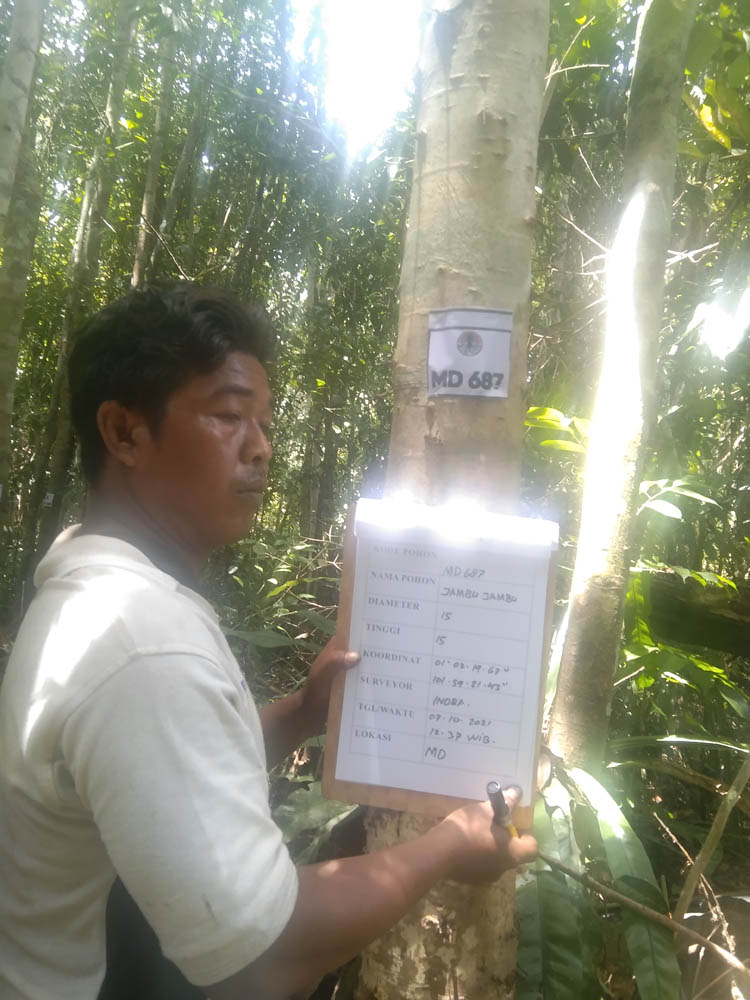 MD 687
KODE POHON MD 687
NAMA POHON JAMBU JAMBU
DIAMETER 15
TINGGI 15
KOORDINAT 01° 02. 19. 67"
101. 59. 21. 43"
SURVEYOR INDRA.
TGL/WAKTU 07. 10. 2021
12. 37 WIB.
LOKASI MD